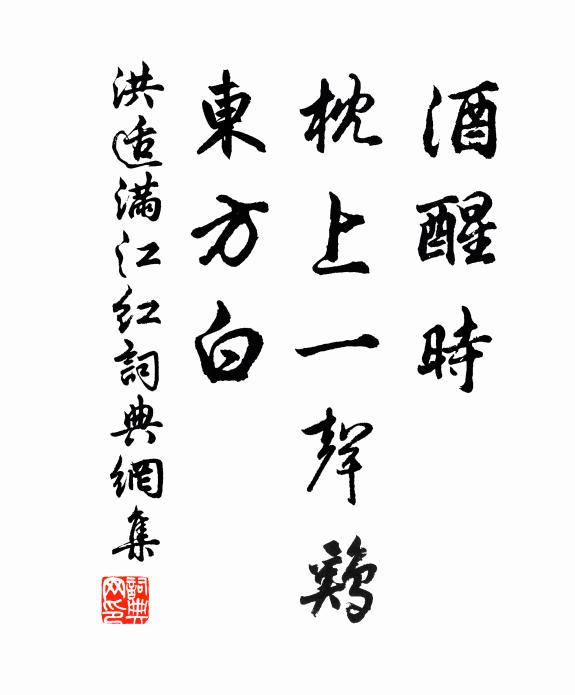 酒醒時
枕上一聲鷄
東方白
洪适滿江紅詞典網集
詞典網印